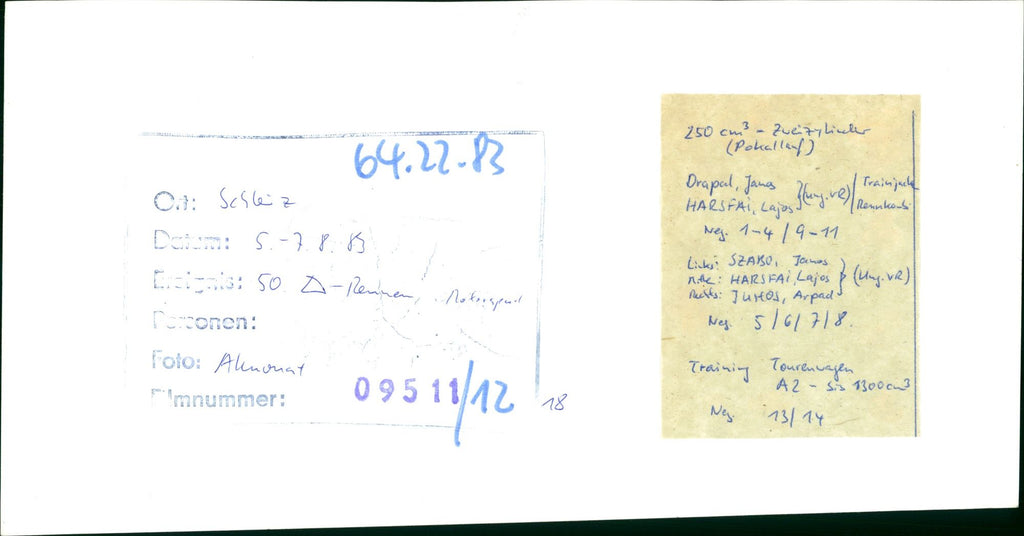 64.22-83
Ort: Schleiz
Datum: 5.-7.8.83
Ereignis: 50. Δ-Rennen,
Personen:
Foto:
Filmnummer: 09511/12 18
250 cm³ - Zweizylinder
(Pokallauf)
Drapal, Janos } (Ung.VR) / Trainijacke
HARSFAI, Lajos Rennkombi
Neg. 1-4 / 9-11
Links: SZABO, Janos
Mitte: HARSFAI, Lajos } (Ung.VR)
Rechts: JUHOS, Arpad
Neg. 5/6/7/8.
Training Tourenwagen
A2 - bis 1300 cm³
Neg. 13/14